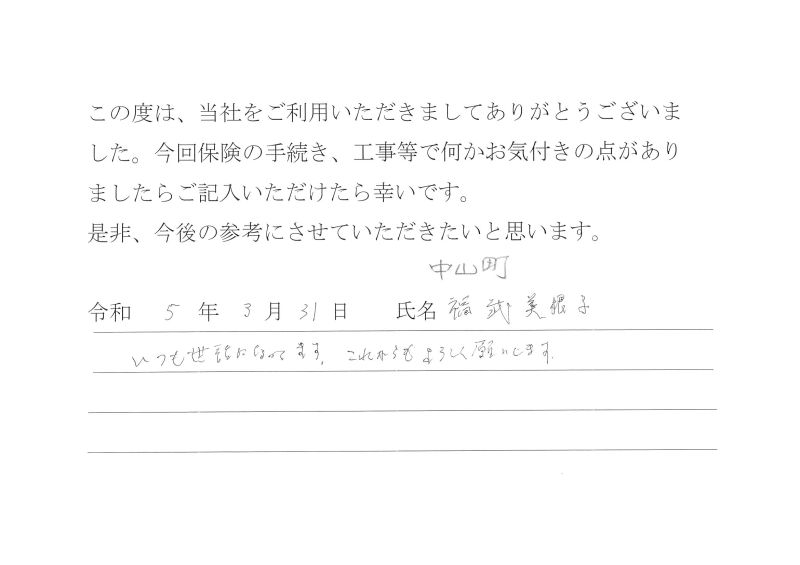 この度は、当社をご利用いただきましてありがとうございま
した。今回保険の手続き、工事等で何かお気付きの点があり
ましたらご記入いただけたら幸いです。
是非、今後の参考にさせていただきたいと思います。
中山町
令和 5 年 3 月 31 日 氏名 福武 美銀子
いつも世話になってます。これからもよろしく願いします。